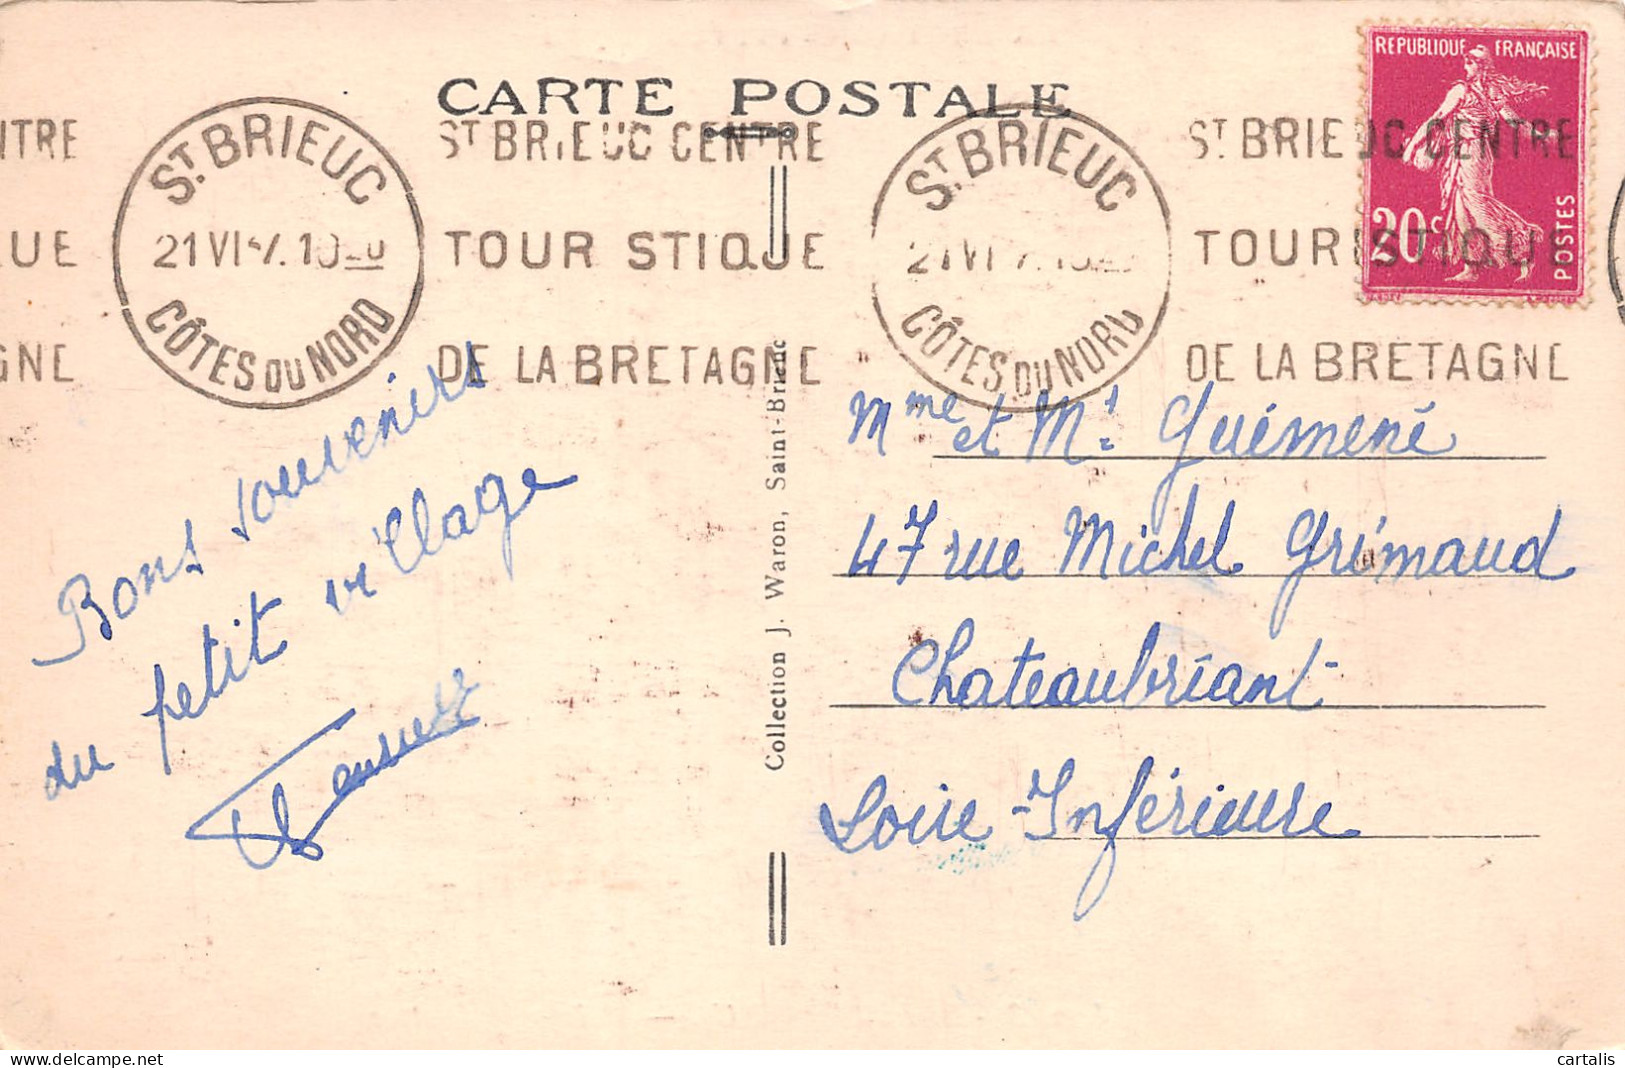 CARTE POSTALE
REPUBLIQUE FRANÇAISE
20c
POSTES
NTRE
UE
GNE
ST. BRIEUC
21 VI
CÔTES DU NORD
ST BRIEUC CENTRE
TOURISTIQUE
DE LA BRETAGNE
ST. BRIEUC
21 VI
CÔTES DU NORD
ST BRIEUC CENTRE
TOURISTIQUE
DE LA BRETAGNE
Bons souvenirs
du petit village
Collection J. Waron, Saint-Brieuc
Mme et Mr Guémené
47 rue Michel Grimaud
Chateaubriant
Loire-Inférieure
cartalis